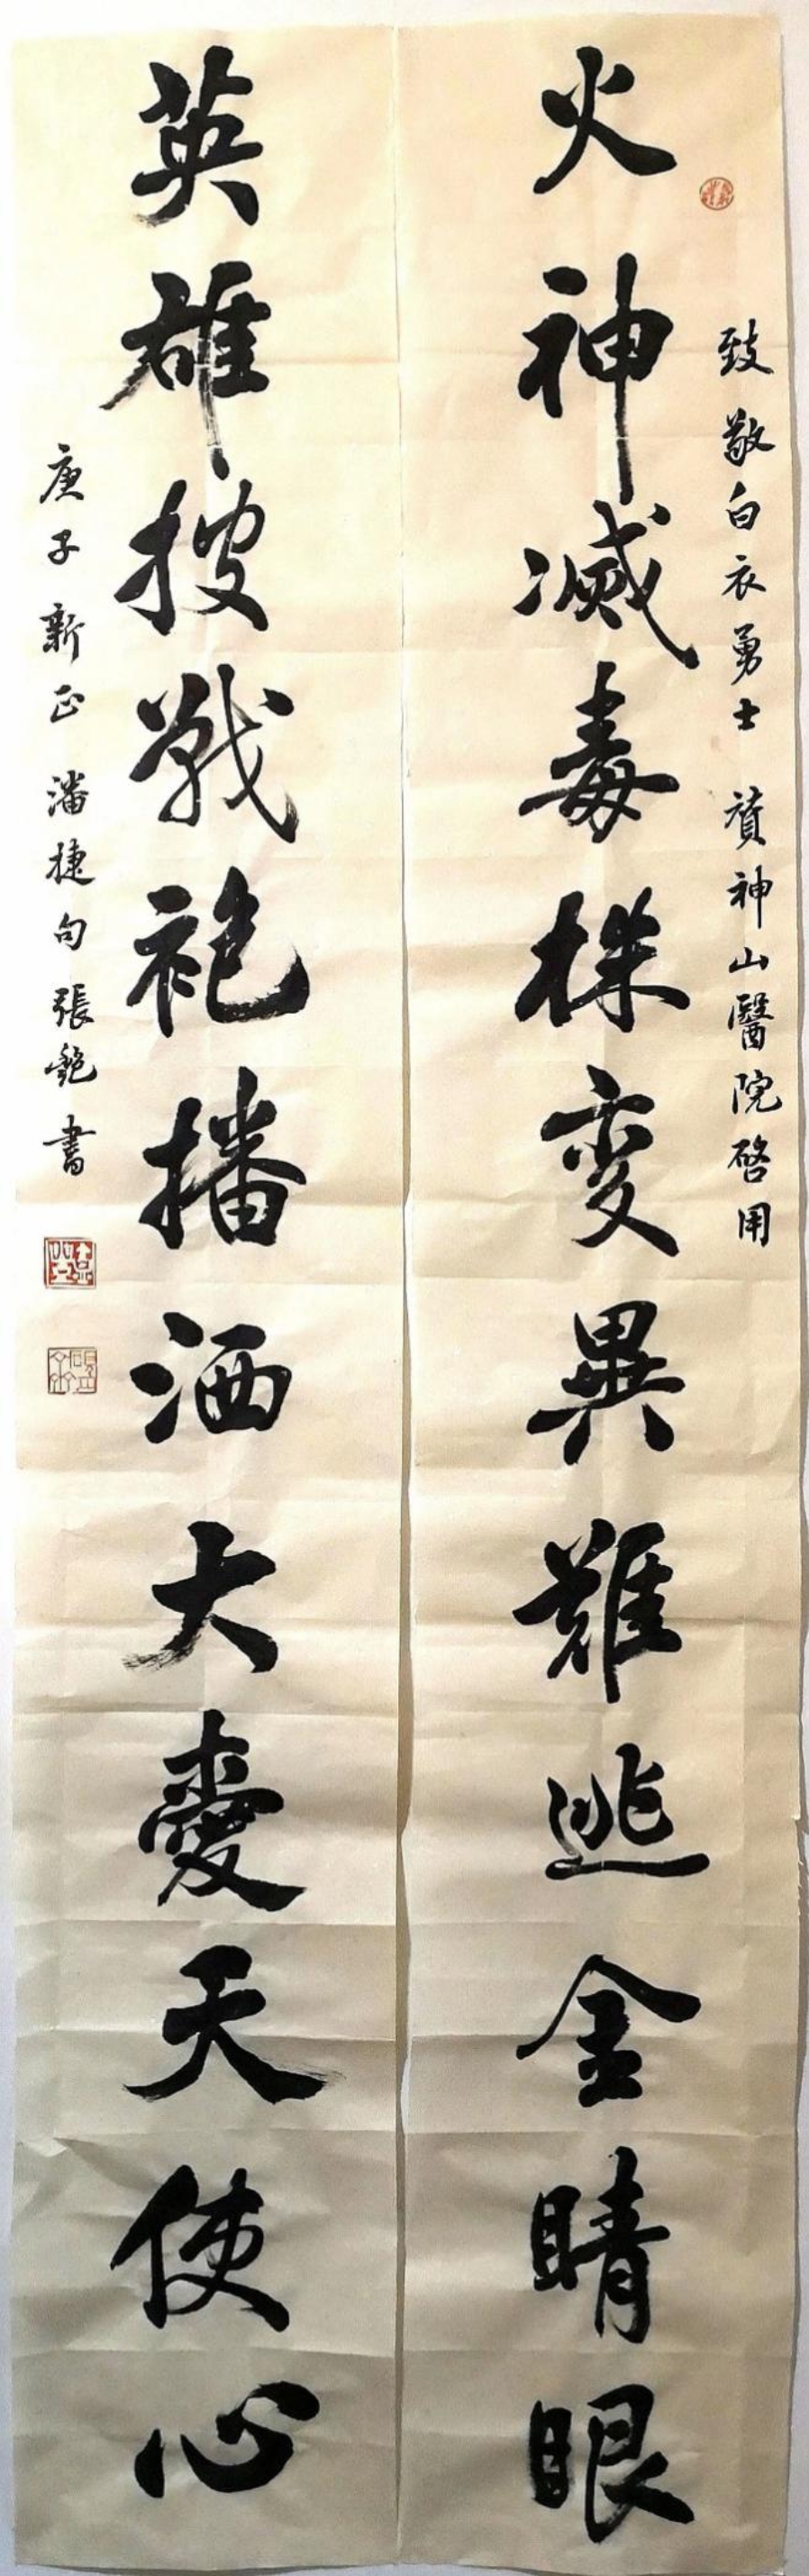 致敬白衣勇士 賀神山醫院啓用
火神滅毒株变異難逃金睛眼
英雄披戰袍播洒大愛天使心
庚子新正 潘捷句張書